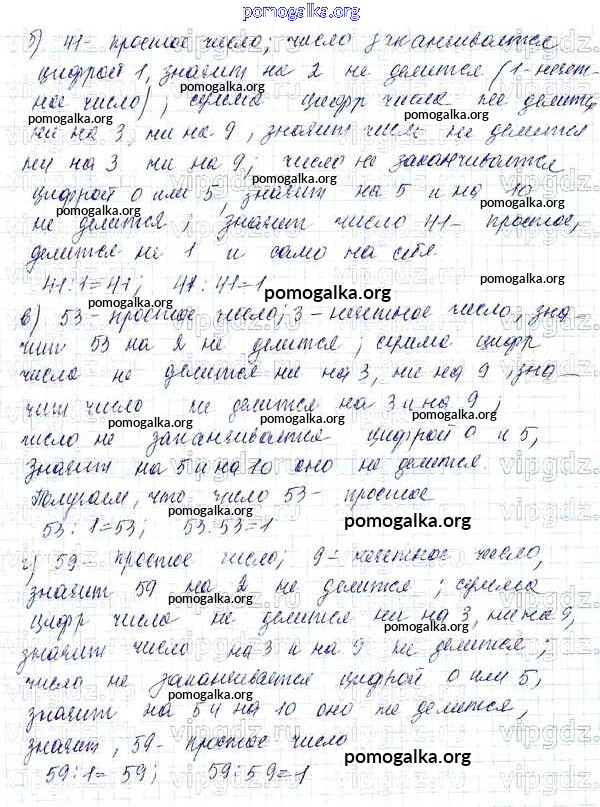 pomogalka.org
б) 41- простое число; число заканчивается
цифрой 1, значит на 2 не делится (1- нечет-
ное число); сумма цифр числа не делится
ни на 3, ни на 9, значит число не делится
ни на 3 ни на 9; число не заканчивается
цифрой 0 или 5, значит на 5 и на 10
не делится; значит число 41- простое,
делится на 1 и само на себя.
41:1=41; 41:41=1
pomogalka.org
в) 53- простое число; 3- нечетное число, зна-
чит 53 на 2 не делится; сумма цифр
числа не делится ни на 3, ни на 9, зна-
чит число не делится на 3 и на 9;
число не заканчивается цифрой 0 и 5,
значит на 5 и на 10 оно не делится.
Получаем, что число 53- простое
53:1=53; 53:53=1
pomogalka.org
г) 59- простое число; 9- нечетное число,
значит 59 на 2 не делится; сумма
цифр числа не делится ни на 3, ни на 9,
значит число на 3 и на 9 не делится;
число не заканчивается цифрой 0 или 5,
значит на 5 и на 10 оно не делится,
значит, 59- простое число
59:1=59; 59:59=1
pomogalka.org